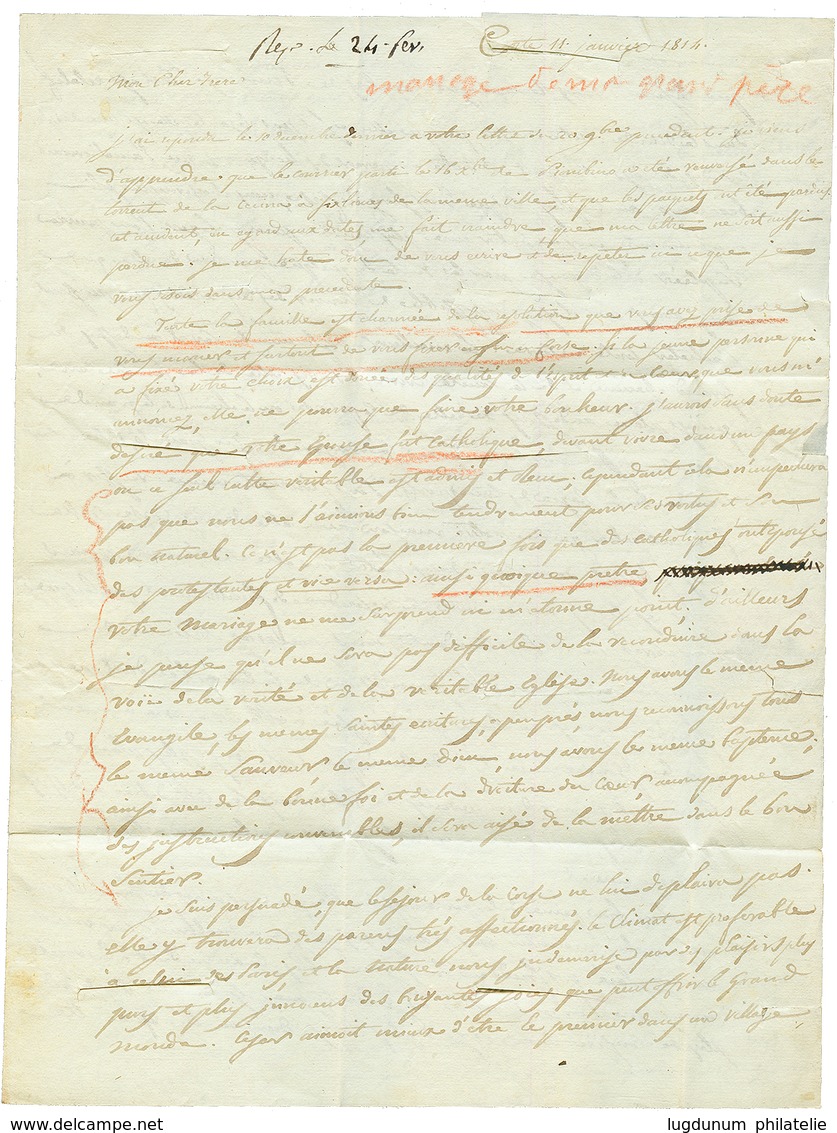 Rep. le 24 fev.
Corte 11 janvier 1814.
mariage de mon grand père
Mon Cher frere
j'ai repondu le 10 decembre dernier a votre lettre du 20 9bre precedent. je viens
d'apprendre que le courrier parti le 16 Xbre de Piombino a été renversé dans le
torrent de la Cecina à six lieues de la meme ville, et que les paquets ont été perdus.
cet accident, eu egard aux dates me fait craindre que ma lettre ne soit aussi
perdue. je me hate donc de vous ecrire et de repeter ici ce que je
vous disois dans ma precedente.
Toute la famille est charmée de la resolution que vous avez prise de
vous marier et surtout de vous fixer en Corse. si la jeune personne qui
a fixé votre choix est douée des qualités de l'esprit et du Coeur que vous m'
annoncez, elle ne pourra que faire votre bonheur. j'aurois sans doute
desiré que votre Epouse fut Catholique, devant vivre dans un pays
où ce seul culte veritable est admis et connu; cependant cela n'empechera
pas que nous ne l'aimions bien tendrement pour ses vertus et son
bon naturel. Ce n'est pas la premiere fois que des catholiques ont epousé
des protestantes, et vice versa: ainsi quoique pretre,
votre mariage ne me surprend ni m'etonne point. D'ailleurs
je pense qu'il ne sera pas difficile de la reconduire dans la
voie de la verité et de la veritable Eglise. Nous avons le meme
Evangile, les memes saintes ecritures, a peu prés, nous reconnoissons tous
le meme Sauveur le meme dieu, nous avons le meme bapteme.
ainsi avec de la bonne foi et de la droiture du coeur accompagnée
des instructions convenables, il sera aisé de la mettre dans le bon
Sentier.
je suis persuadé, que le sejour de la Corse ne lui deplaira pas.
elle y trouvera des parens trés affectionnés. le Climat est preferable
à celui de Paris et la nature nous indemnise par des plaisirs plus
purs et plus innocens des bruyantes joies que peut offrir le Grand
monde. Cesar aimoit mieux d'être le premier dans un village
delcampe.net
lugdunum philatelie